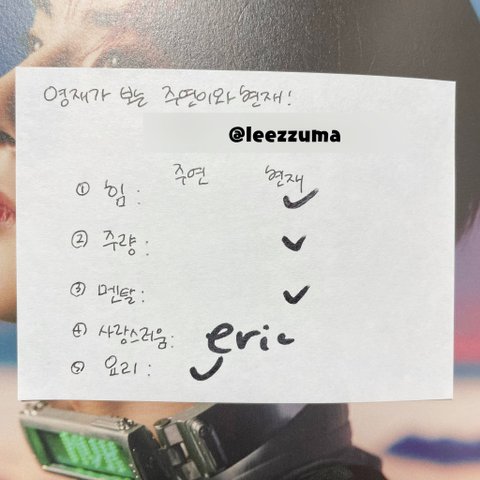 영재가 보는 주연이와 현재!
@leezzuma
주연 현재
① 힘: ✓
② 주량: ✓
③ 멘탈: ✓
④ 사랑스러움: eric
⑤ 요리: ✓